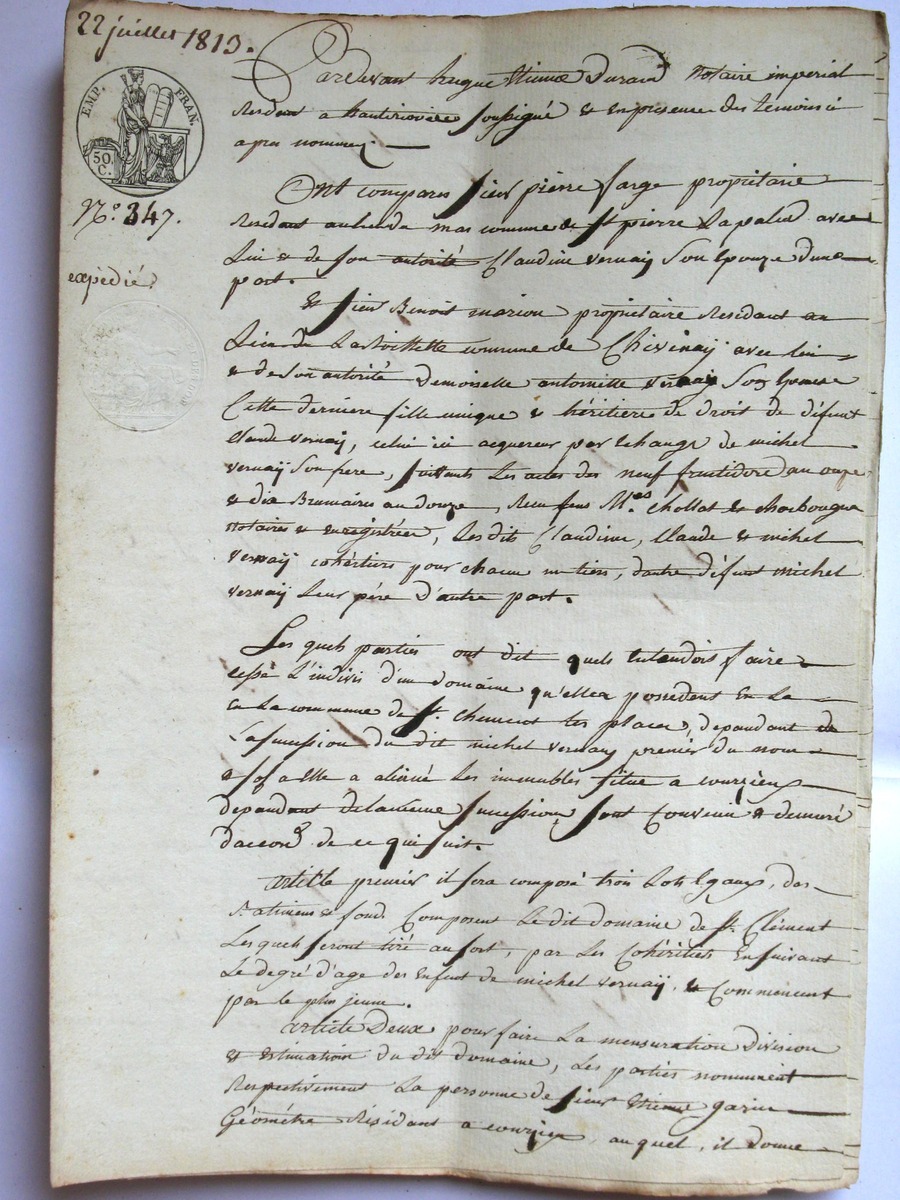 22 juillet 1813.
EMP. FRAN.
50. C.
N.º 347.
expédié
Pardevant hugue Etienne Durand notaire imperial
Residant a hauterivoire soussigné & en presence des temoins ci
apres nommez.
Ont compares sieur pierre farge propriétaire
Residant au lieu de mas commune de St pierre Lapalud avec
Lui & de son autorité Claudine vernay Son Epouze d'une
part.
& sieur Benoit marion propriétaire Residant au
Lieu de commune de Chivinay avec lui
& de Son autorité Demoiselle antoinette vernay Son Epouse
Cette derniere fille unique & héritiere de droit de défunt
Claude vernay, celui ici acquereur par Echange de michel
vernay Son frere, suivants Les actes des neuf fructidore an onze
& dix Brumaires an douze, Recu feus M.es Chollat &
notaires & enregistrées, Lesdits Claudine, Claude & michel
vernay cohéritiers pour chacun un tiers, dautre défunt michel
vernay Leur père d'autre part.
Les quels parties ont dit quels Entendois faire
cessé L'indivis d'un domaine qu'elles possedent En La
En La commune de St. Clement les places, dependant de
La succession du dit michel vernay premier du nom
& a Elle a aliéné Les immeubles situé a courzieu
dependant de la meme succession, sont Convenu & demuré
daccord de ce qui suit.
article premier il sera composé trois Lots Egaux, des
Batimens & fonds Composent Le dit domaine de St. Clément
Les quels seront tiré au sort, par Les Cohéritiers En suivant
Le degré d'age des Enfant de michel vernay, & Commencent
par le plus jeune.
article Deux pour faire La mensuration division
& estimation du dit domaine, Les parties nomment
Respectivement La personne de sieur Etienne
Géométre Résidant a courzieu, au quel, il donne